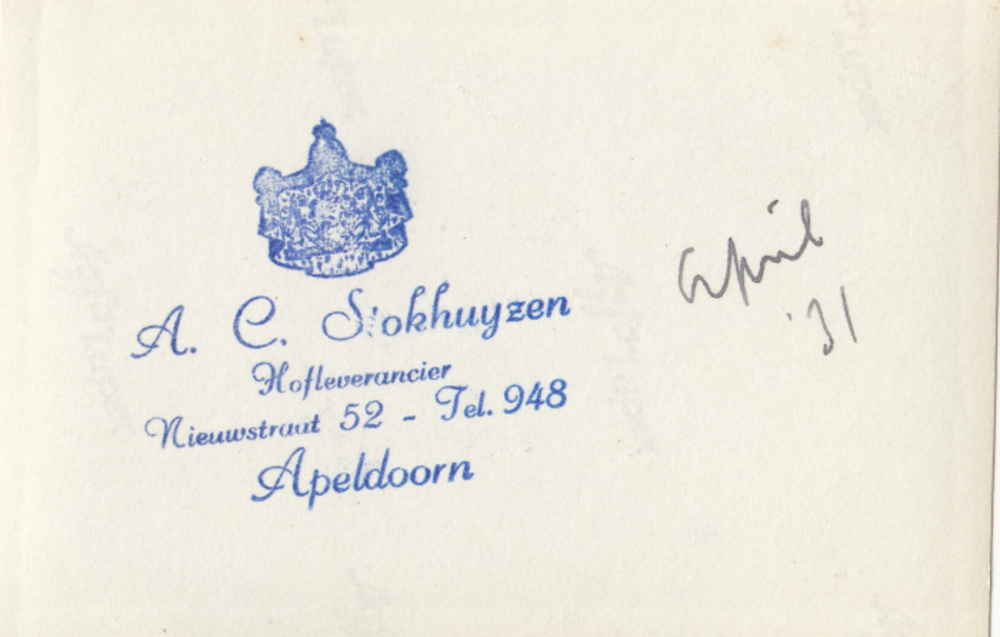 A. C. Stokhuyzen
Hofleverancier
Nieuwstraat 52 - Tel. 948
Apeldoorn
April
'31